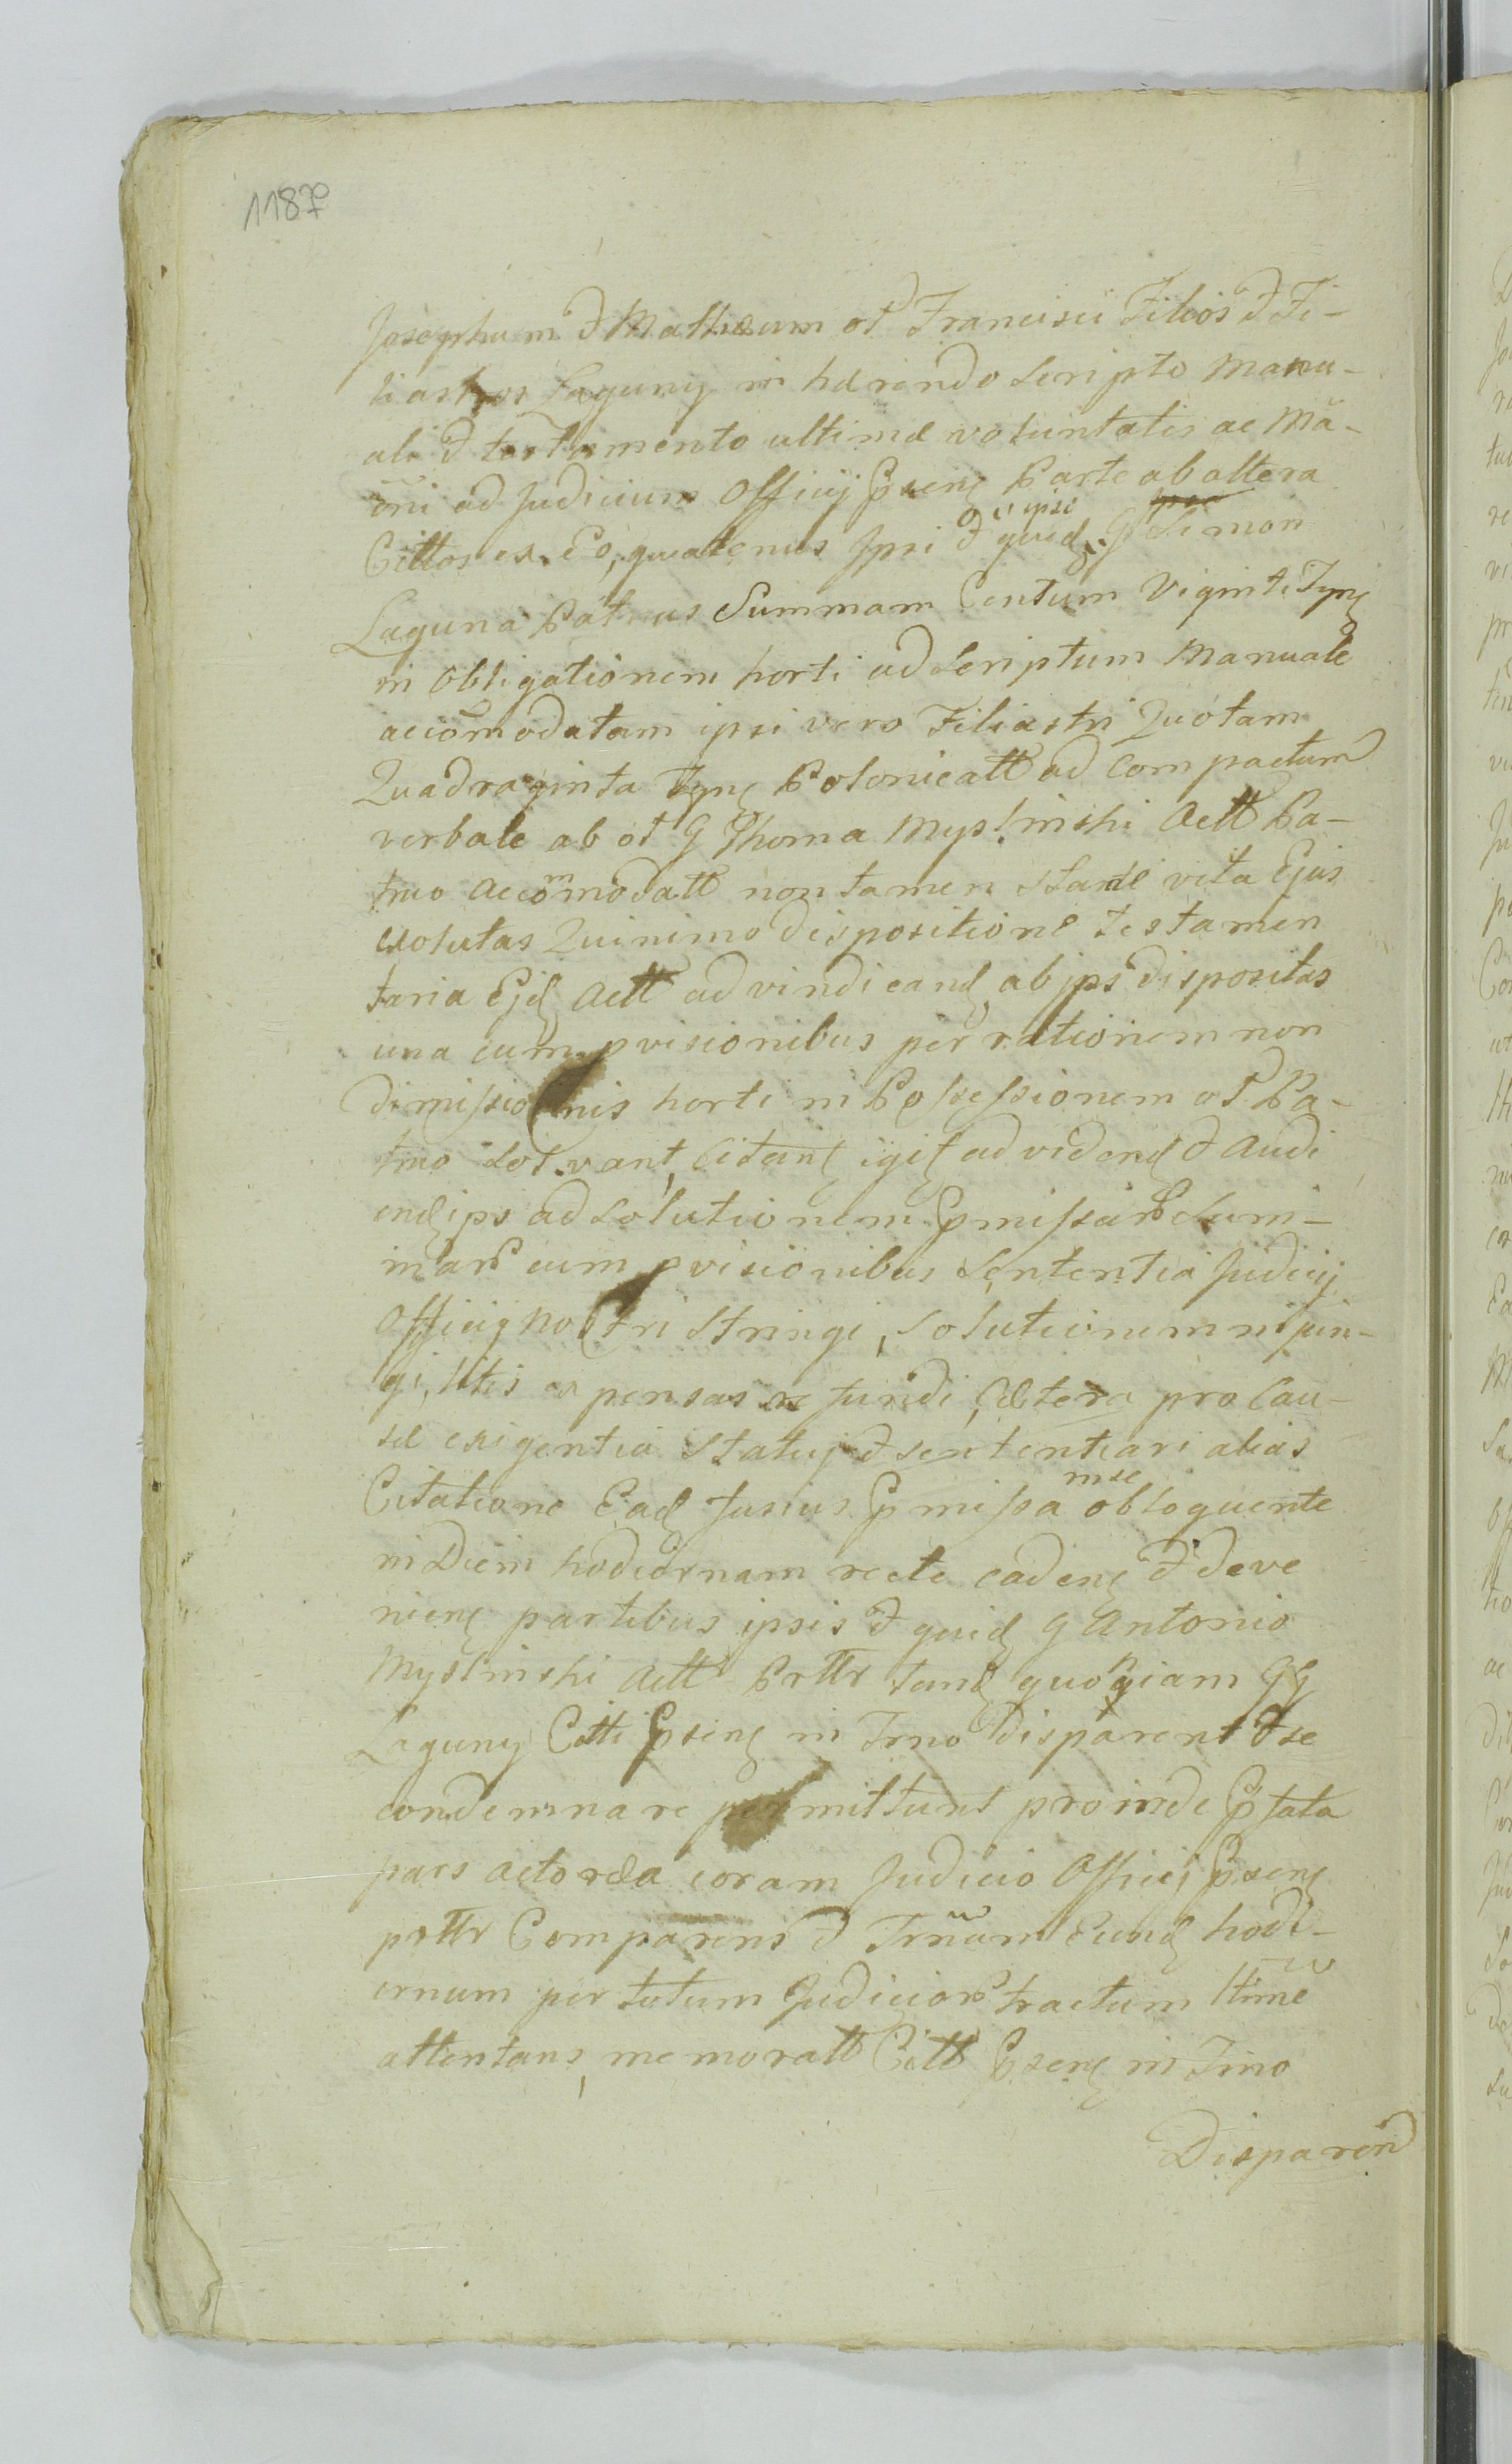 118v
Josephum & Mathæum ol Francisci Filios & Fi-
liastros Laguny inhærendo Scripto Manu-
ali & testamento ultimæ voluntatis ac Mā-
oni ad Judicium Officij Prsens Parte ab altera
Cittos ex Eo, quatenus Ipsi & quid ipse G Simon
Laguna Patruus Summam Centum Viginti Tyns
in Obligationem horti ad Scriptum Manuale
accōmodatam ipsi vero Filiastri Quotam
Quadraginta Tyns Polonicatt ad Compactum
verbale ab ol G Thoma Myslinski Actt Pa-
truo Accōmodatt non tamen stante vita Ejus
exolutas Quinimo dispositione testamen
taria Ejd Actt ad vindicand ab ips dispositas
una cum pvisionibus per rationem non
dimissionis horti in Possessionem ol Pa-
truo Solvant, Citans igit ad vidend & Audi
end ips ad Solutionem Pmissar Sum-
mar cum pvisionibus Sententia Judicij
Officij Nostri Stringi, Solutionem injun-
gi, litis expensas refundi, Cætera pro Cau-
sæ exigentia Statui & sententiari alias
Citatione Ead fusius Pmissa mse obloquente
in Diem hodiernam recte cadens & deve
niens partibus ipsis & quid G Antonio
Myslinski Actt Prttr tand quoniam GG
Laguny Citti Psens in Trno disparent & se
condemnare permittunt proinde Pfata
pars actorea coram Judicio Officij Psens
prttr Comparens & Trnum Eund hodi-
ernum per totum Judicior tractum ltime
attentans, memoratt Citt Psens in Trno
Disparen